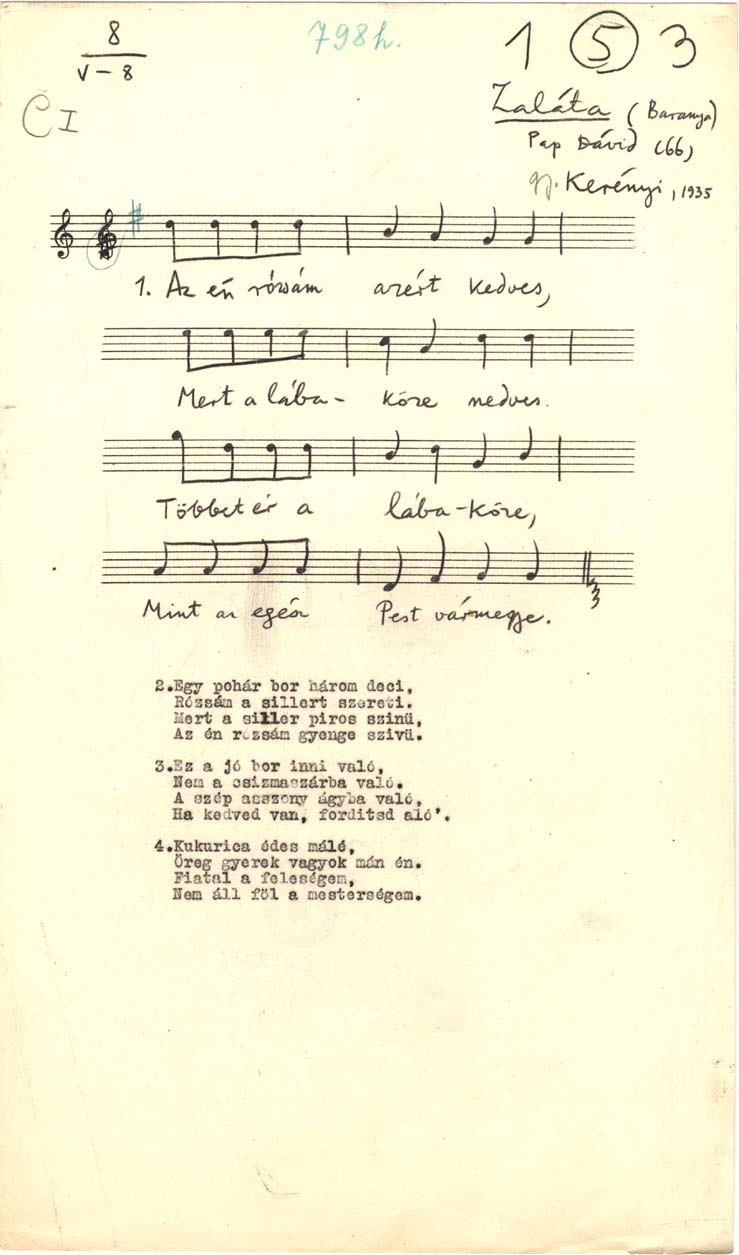 8
V-8
798h.
1 5 3
CI
Zaláta (Baranya)
Pap Dávid (66)
gy. Kerényi, 1935
1. Az én rózsám azért kedves,
Mert a lába- köze nedves.
Többet ér a lába-köze,
Mint az egész Pest vármegye.
2.Egy pohár bor három deci,
Rózsám a sillert szereti.
Mert a siller piros szinü,
Az én rózsám gyenge szivü.
3.Ez a jó bor inni való,
Nem a csizmaszárba való.
A szép asszony ágyba való,
Ha kedved van, forditsd aló'.
4.Kukurica édes málé,
Öreg gyerek vagyok mán én.
Fiatal a feleségem,
Nem áll föl a mesterségem.